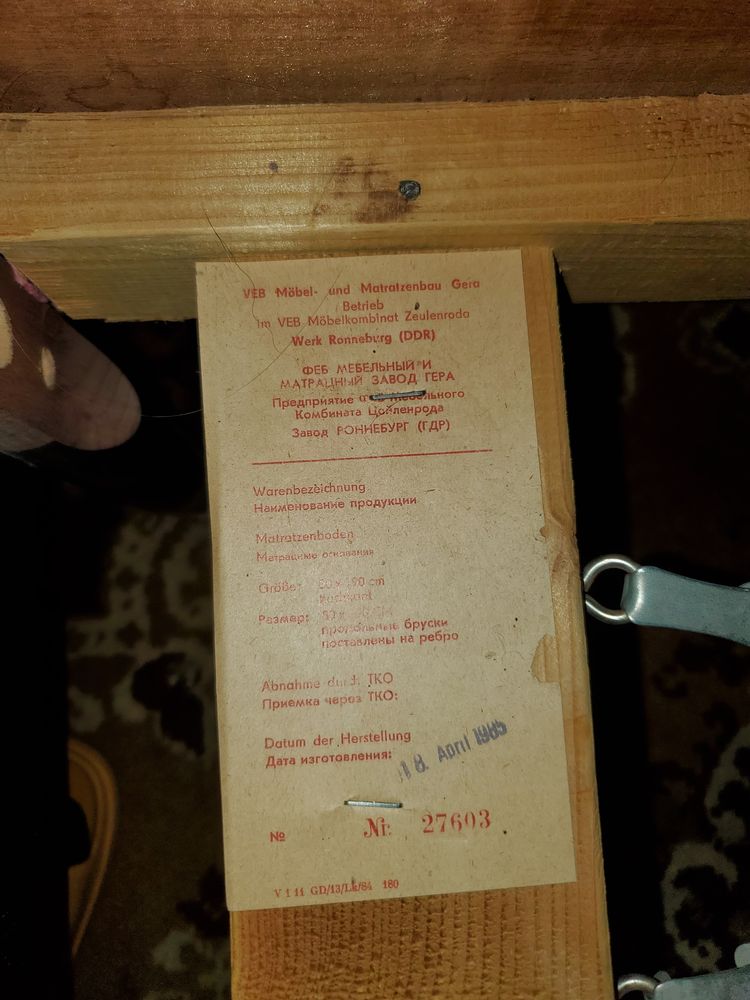 VEB Möbel- und Matratzenbau Gera
Betrieb
im VEB Möbelkombinat Zeulenroda
Werk Ronneburg (DDR)
ФЕБ МЕБЕЛЬНЫЙ И
МАТРАЦНЫЙ ЗАВОД ГЕРА
Предприятие
Комбината Цойленрода
Завод РОННЕБУРГ (ГДР)
Warenbezeichnung
Наименование продукции
Matratzenboden
Матрацные основания
Größe: cm
Размер:
продольные бруски
поставлены на ребро
Abnahme durch TKO
Приемка через ТКО:
Datum der Herstellung
Дата изготовления:
18. April 1985
№ Nr. 27603
V 1 11 GD/13/Lk/84 180